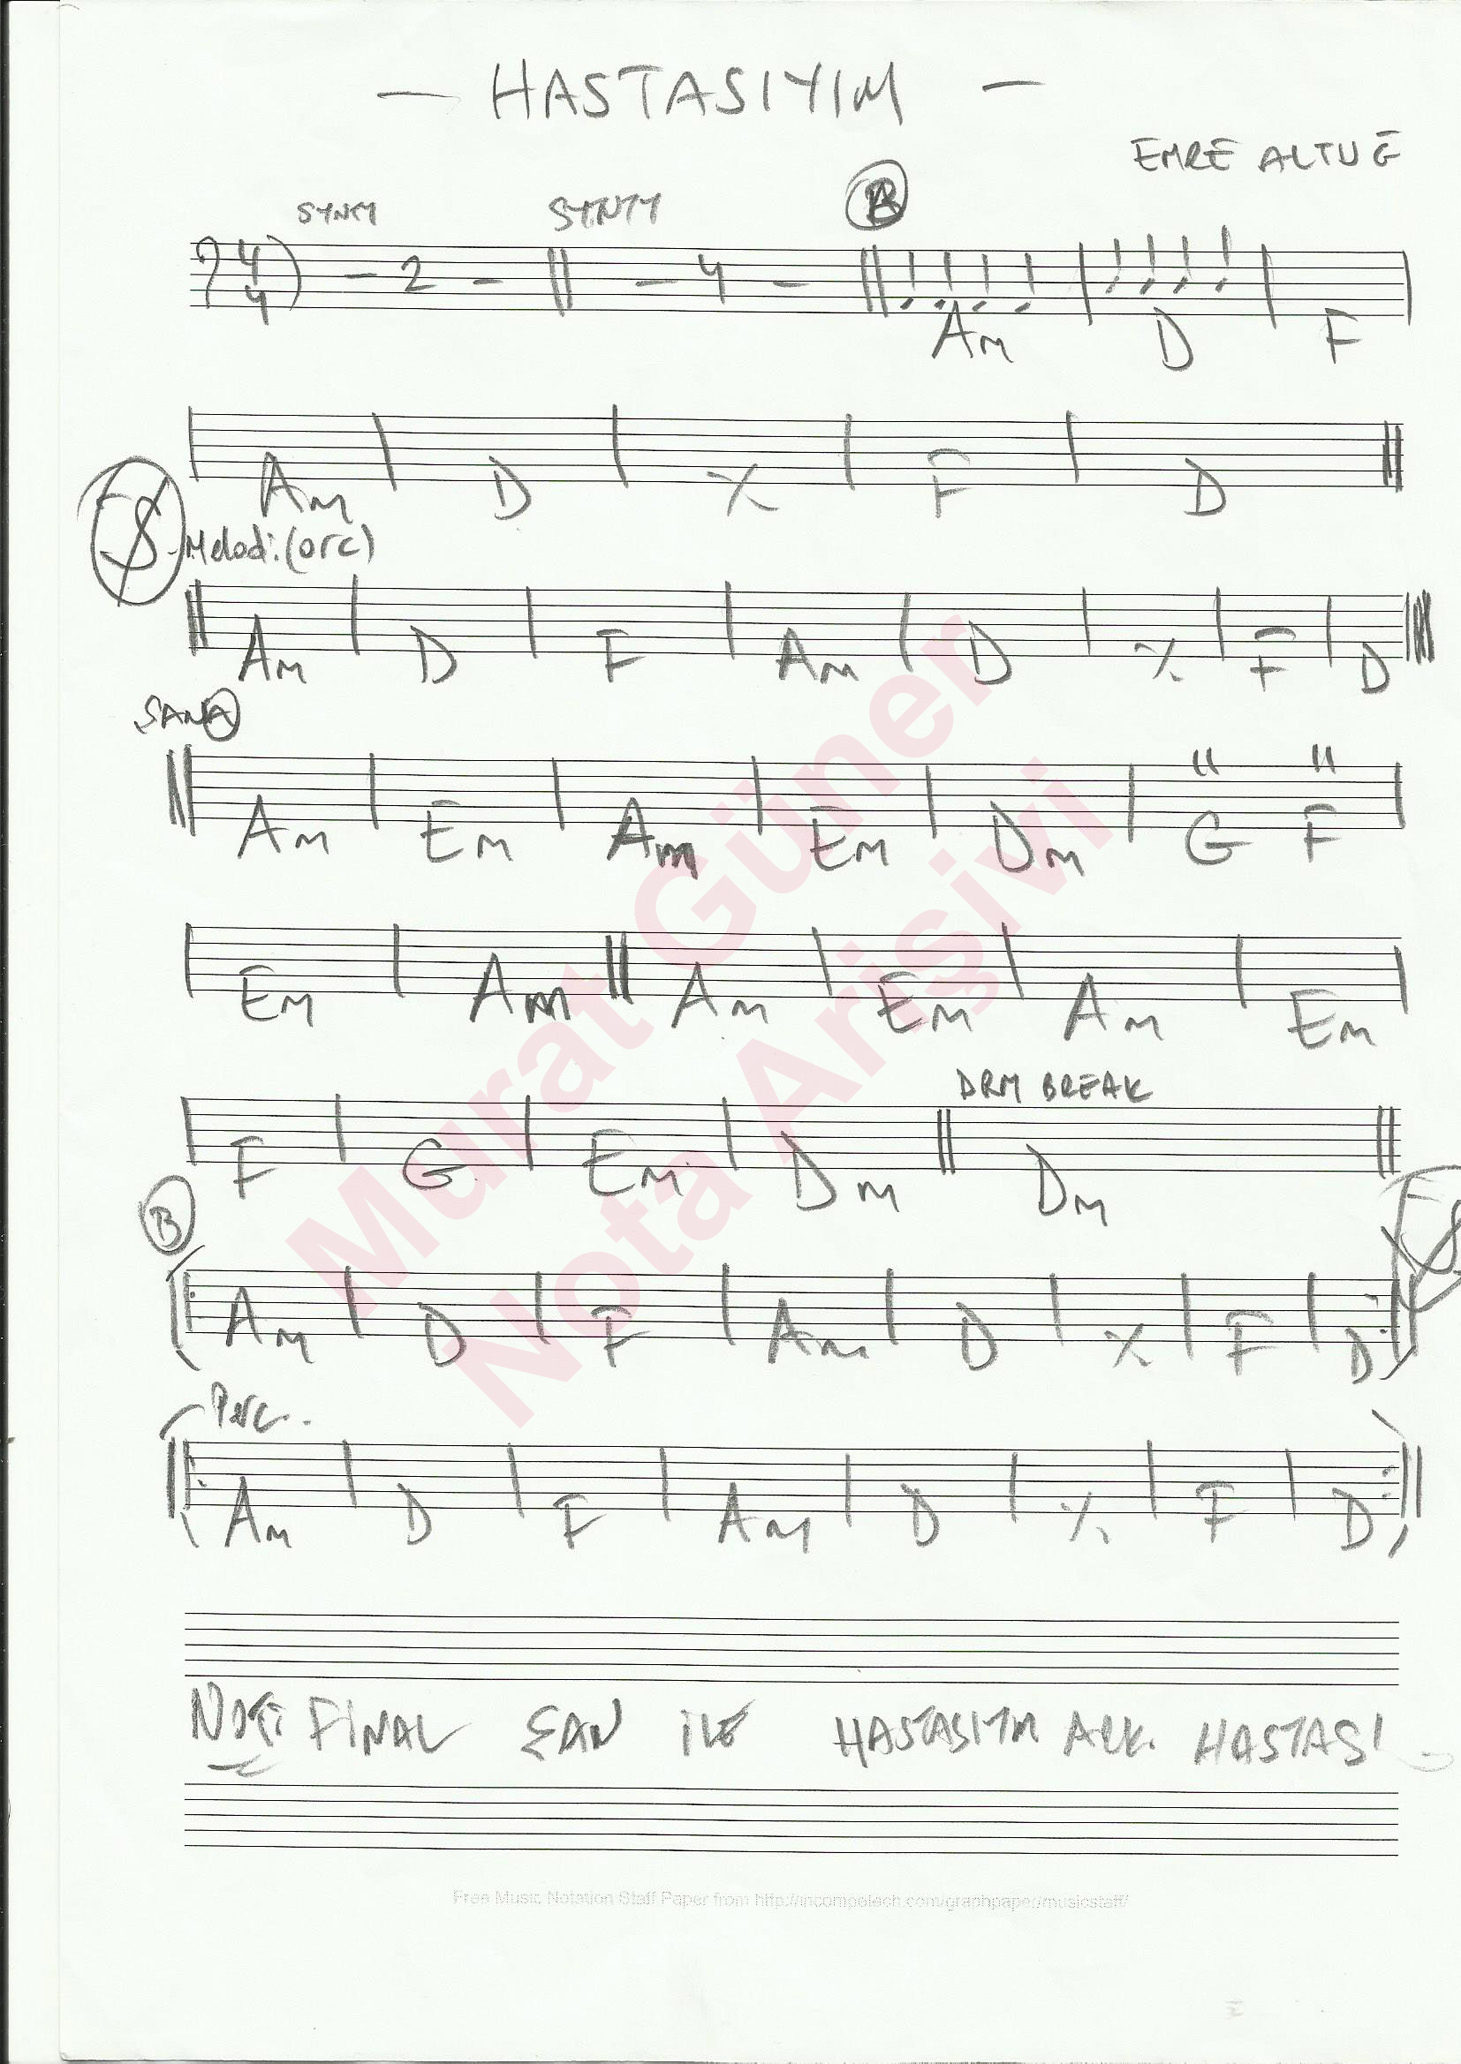 — HASTASIYIM —
EMRE ALTUĞ
SYNTY SYNTY A
4/4 - 2 - - 4 - Am D F
Am D % F D
Melodi:(orc)
Am D F Am D % F D
A
Am Em Am Em Dm G F
Em Am Am Em Am Em
DRM BREAK
F G Em Dm Dm
B
Am D F Am D % F D
Perc.
Am D F Am D % F D
NOT: FINAL ŞAN ile HASTASIYIM HASTASI
Murat Güner
Nota Arişivi
Free Music Notation Staff Paper from http://incompetech.com/graphpaper/musicstaff/